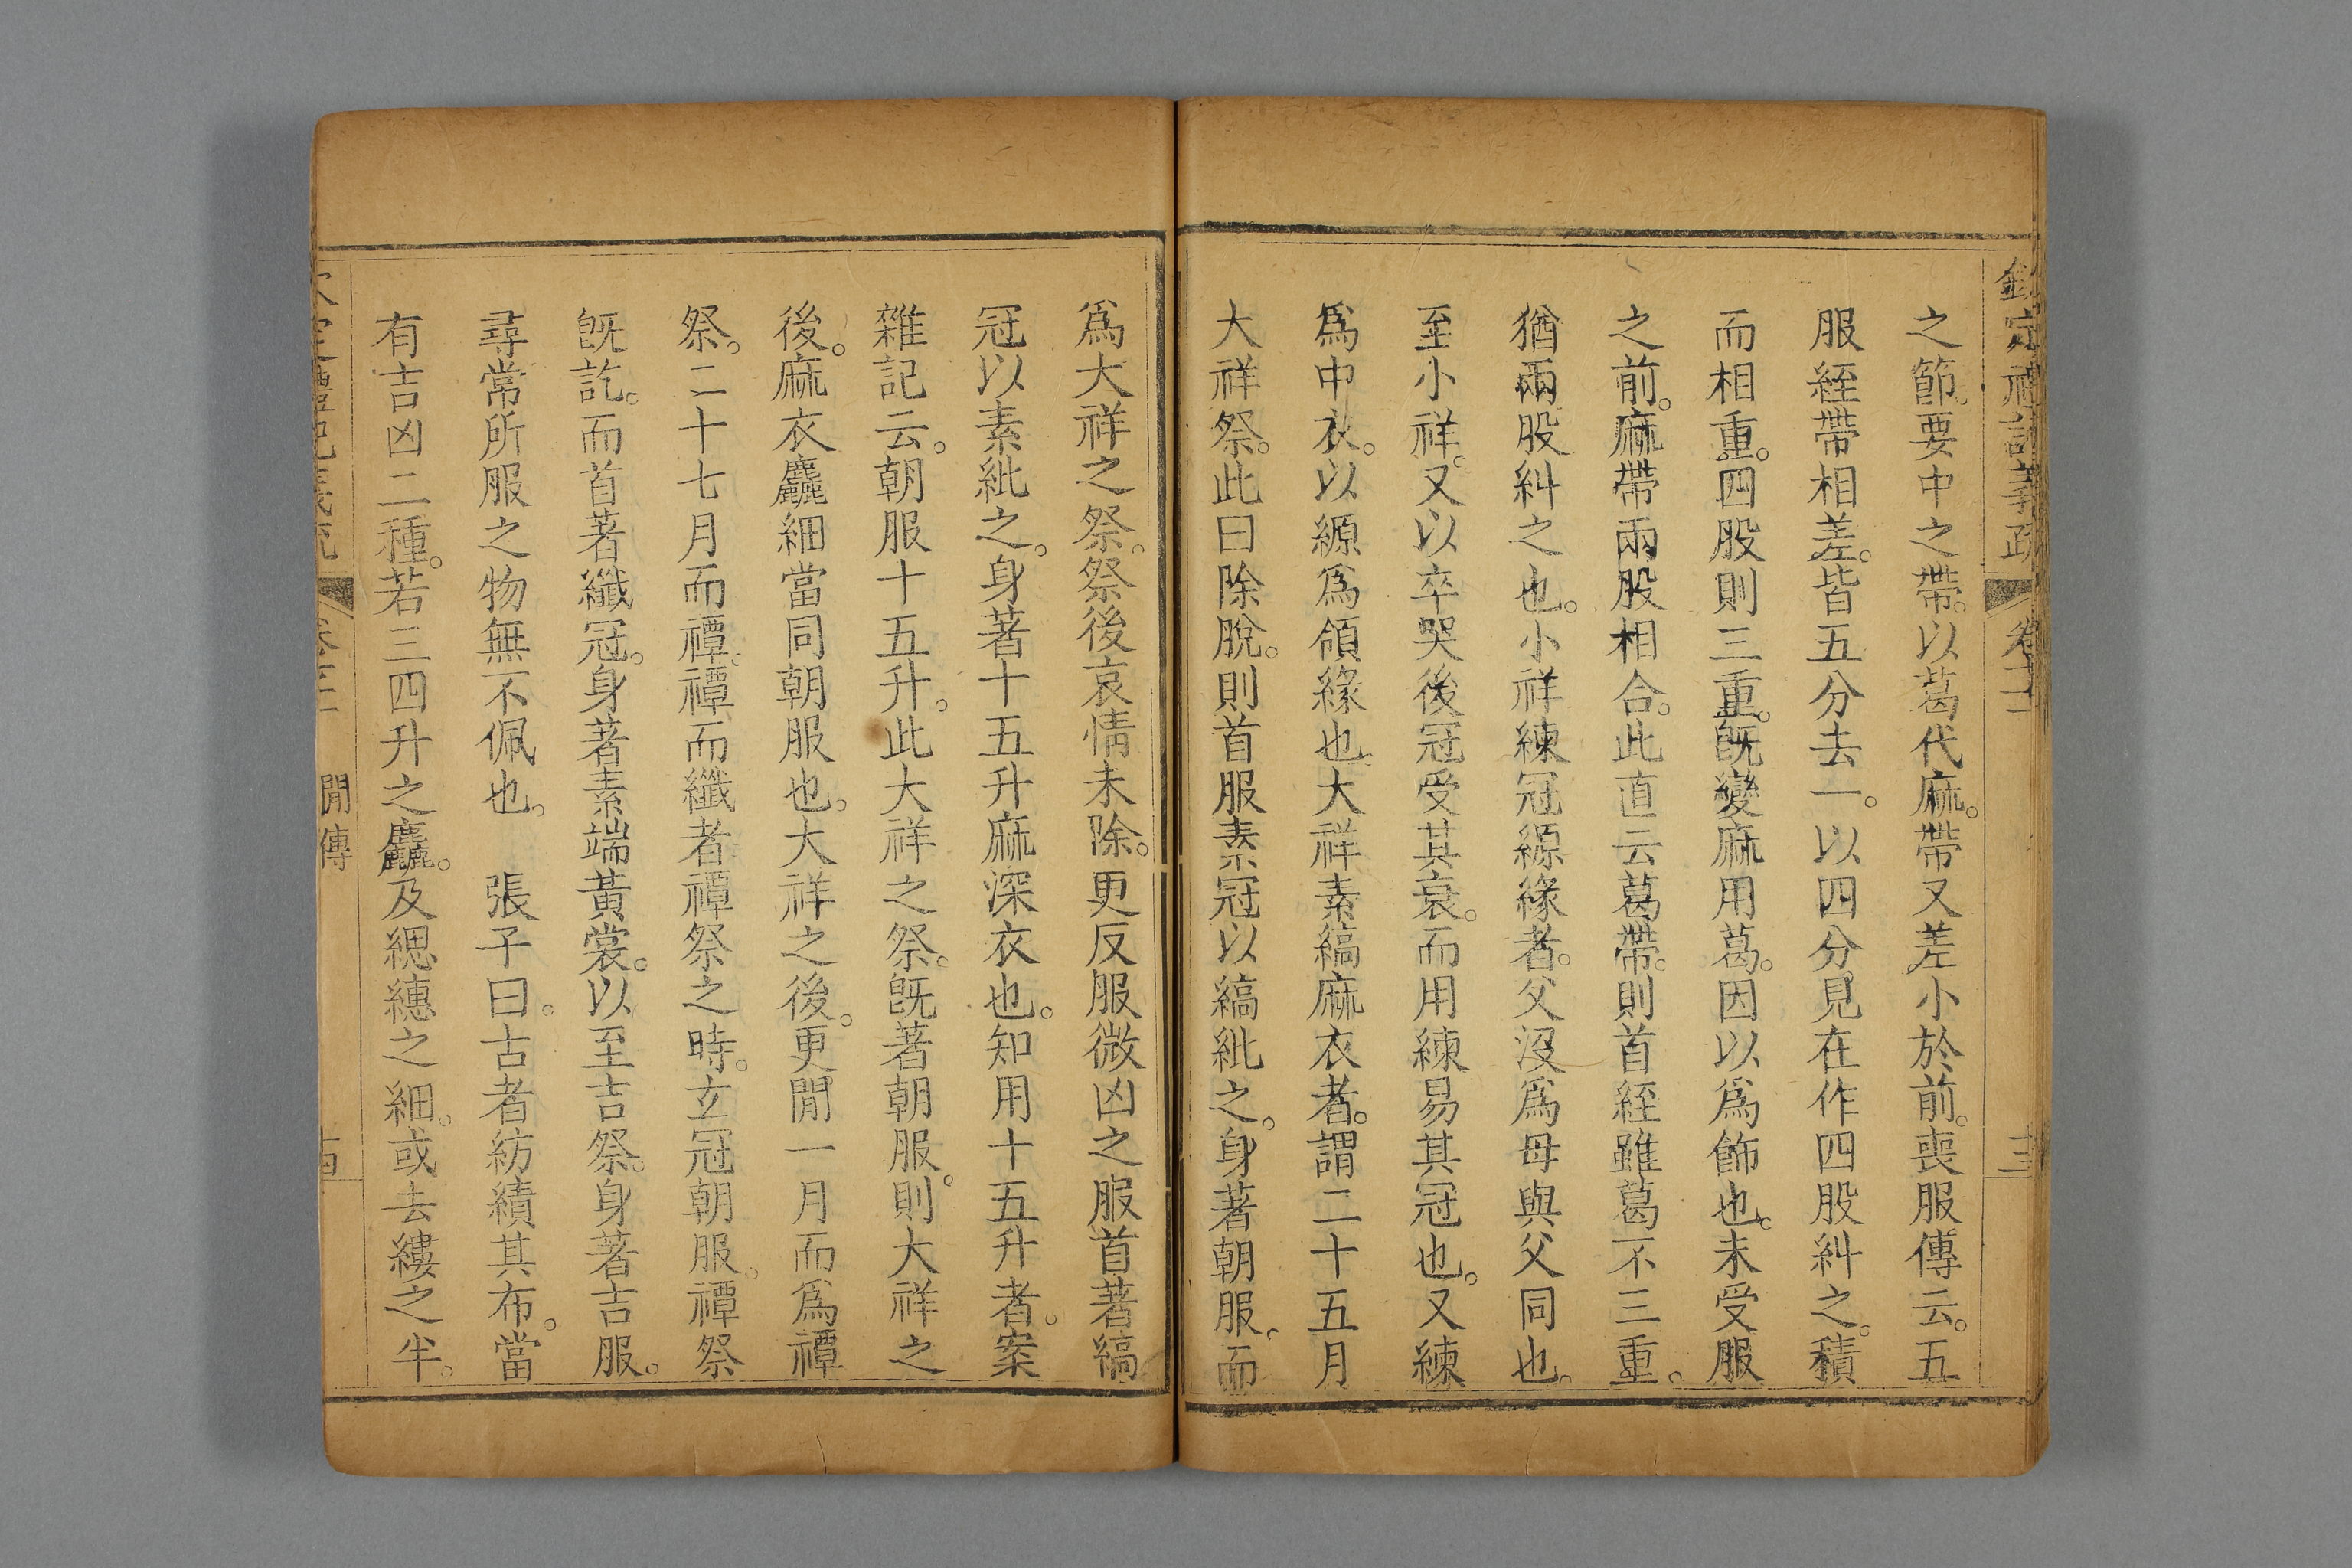 欽定禮記義疏 卷 十三
之節。要中之帶。以葛代麻。帶又差小於前。喪服傳云。五
服絰帶相差。皆五分去一。以四分見在作四股糾之。積
而相重。四股則三重。旣變麻用葛。因以爲飾也。未受服
之前。麻帶兩股相合。此直云葛帶。則首絰雖葛不三重。
猶兩股糾之也。小祥練冠縓緣者。父沒爲母與父同也。
至小祥。又以卒哭後冠受其衰。而用練易其冠也。又練
爲中衣。以縓爲領緣也。大祥素縞麻衣者。謂二十五月
大祥祭。此日除脫。則首服素冠以縞紕之。身著朝服。而
爲大祥之祭。祭後哀情未除。更反服微凶之服首著縞
冠以素紕之。身著十五升麻深衣也。知用十五升者。案
雜記云。朝服十五升。此大祥之祭。旣著朝服。則大祥之
後。麻衣麤細當同朝服也。大祥之後。更閒一月而爲禫
祭。二十七月而禫。禫而纖者禫祭之時。玄冠朝服。禫祭
旣訖。而首著纖冠。身著素端黃裳。以至吉祭。身著吉服。
尋常所服之物無不佩也。 張子曰。古者紡績其布。當
有吉凶二種。若三四升之麤。及緦繐之細。或去縷之半。
欽定禮記義疏 卷 閒傳 十四